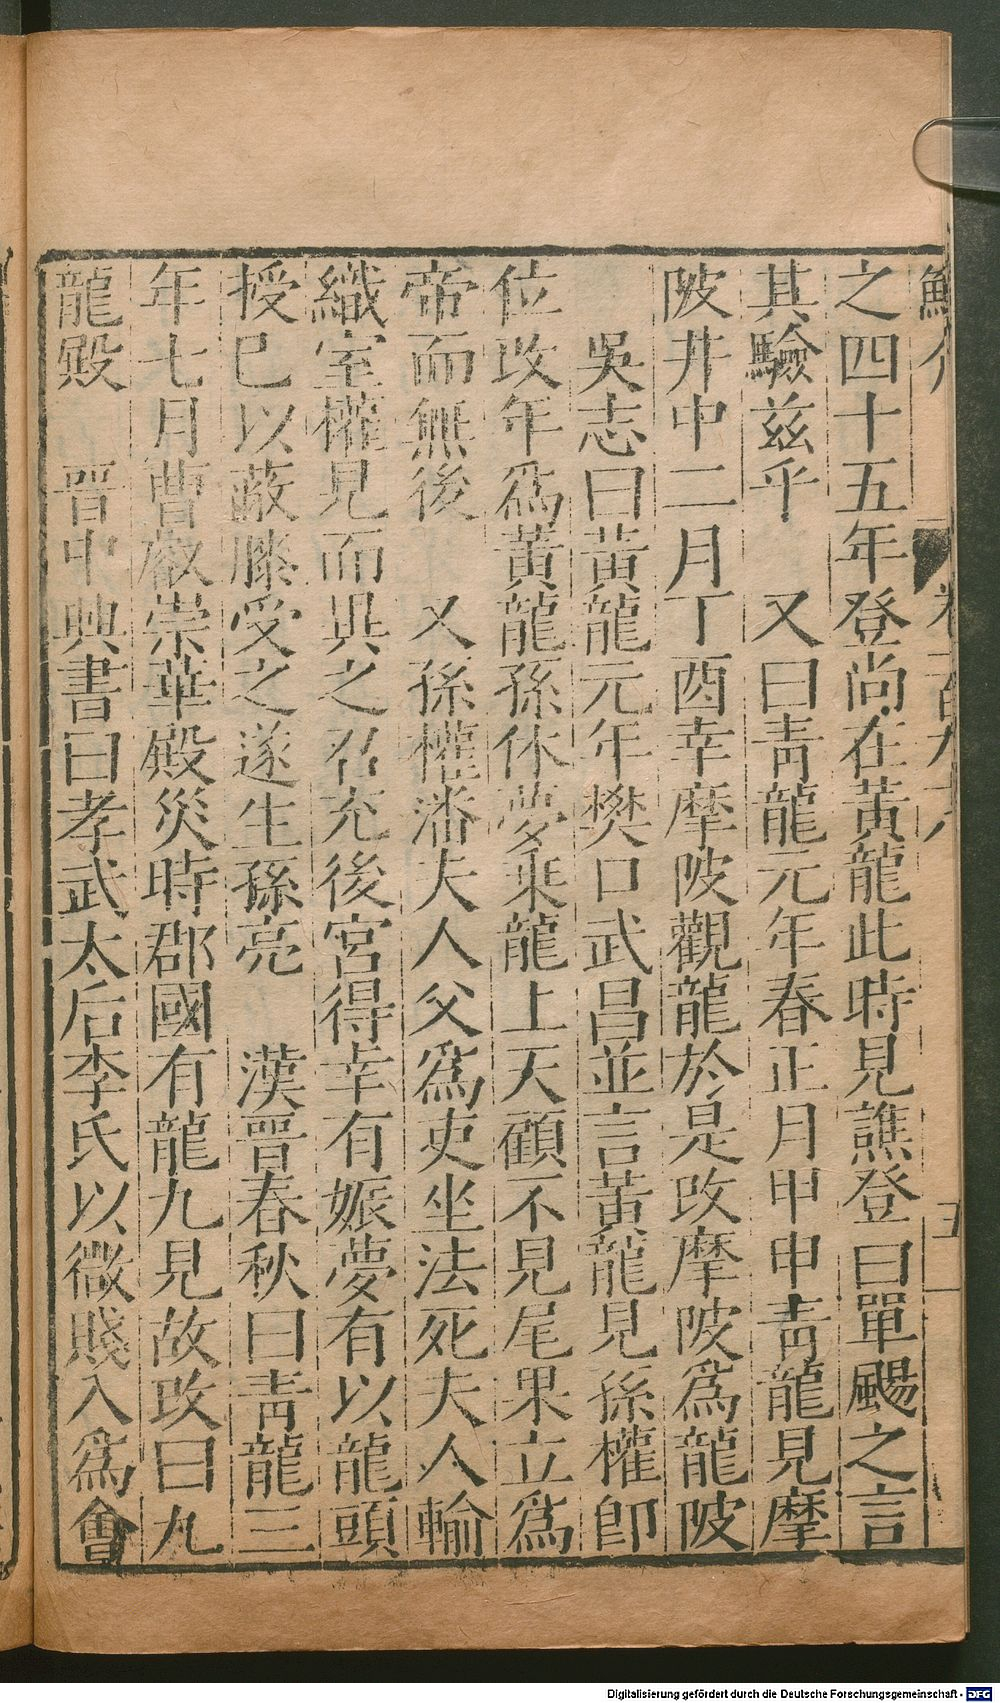 之四十五年登尚在黃龍此時見譙登曰單颺之言
其驗茲乎　又曰青龍元年春正月甲申青龍見摩
陂井中二月丁酉幸摩陂觀龍於是攺摩陂爲龍陂
吳志曰黃龍元年樊口武昌並言黃龍見孫權卽
位攺年爲黃龍孫休夢乘龍上天顧不見尾果立爲
帝而無後　又孫權潘夫人父爲吏坐法死夫人輸
織室權見而異之召充後宮得幸有娠夢有以龍頭
授巳以蔽膝受之遂生孫亮　漢晉春秋曰青龍三
年七月曹叡崇華殿災時郡國有龍九見故攺曰九
龍殿　晉中興書曰孝武太后李氏以微賤入爲會
Digitalisierung gefördert durch die Deutsche Forschungsgemeinschaft - DFG